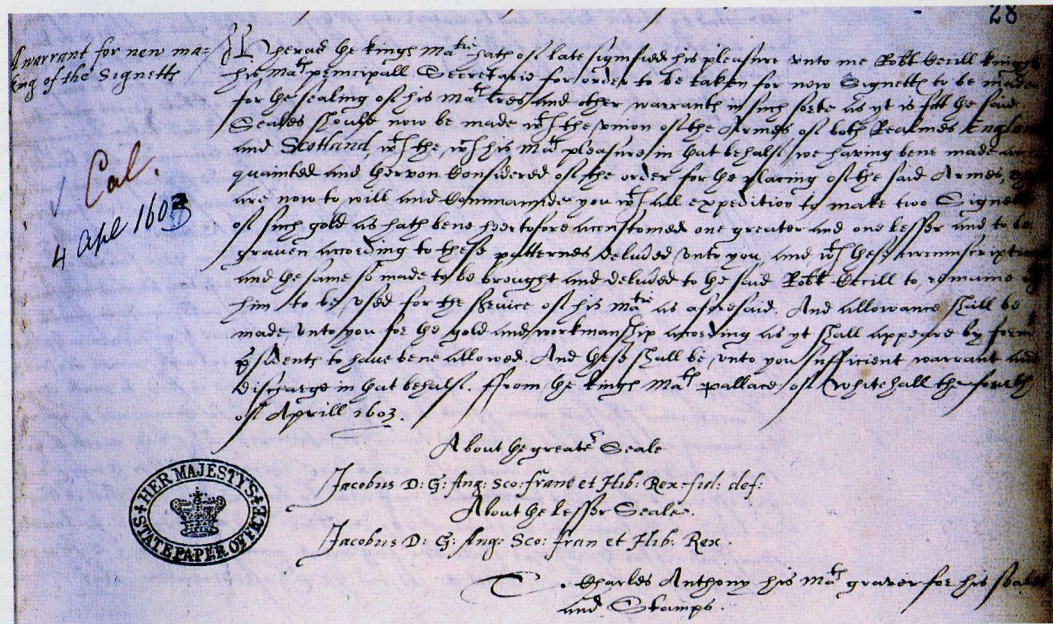 28
A warrant for new ma=
king of the Signetts
Whereas the kings Matie hath of late signified his pleasure unto me Robt Cecill kings
his Mats principall Secretarie for order to be taken for new Signetts to be made
for the sealing of his Mats lres and other warrants in such sorte as yt is fitt the said
Seales should now be made wth the union of the Armes of both Realmes England
and Scotland, wth the wth his Mats pleasure in that behalf, we having bene made ac
quainted and thereon considered of the order for the placing of the said Armes,
are now to will and commaunde you wth all expedition to make two Signetts
of such gold as hath bene heretofore accustomed one greater and one lesser and to be
graven according to these patternes delivered unto you, and wth these circumscriptions
and the same so made to be brought and delivered to the said Robt Cecill to remaine
him to be used for the service of his Matie as aforesaid. And allowance shall be
made unto you for the gold and workmanship according as yt shall appeare by form
psidents to have bene allowed. And these shall be unto you sufficient warrant and
discharge in that behalf. ffrom the kings Mats pallace of Whitehall the fourth
of Aprill 1603.
Cal.
4 Apl 1603
About the greater Seale
Jacobus D: G: Ang: Sco: franc et Hib: Rex fid: def:
About the lesser Seale.
Jacobus D: G: Ang: Sco: fran et Hib: Rex.
Charles Anthony his Mats graver for his seales
and Stamps.
HER MAJESTY'S
STATE PAPER OFFICE